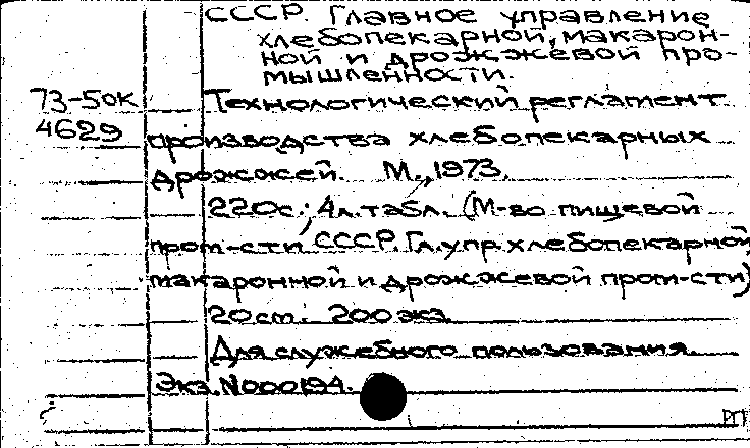 СССР. Главное управление
хлебопекарной, макарон-
ной и дрожжевой про-
мышленности.
73-50к Технологический регламент
4629 производства хлебопекарных
дрожжей. М., 1973.
220с.; 4л.табл. (М-во пищевой
пром-сти СССР. Гл.упр.хлебопекарной,
макаронной и дрожжевой пром-сти)
20см. 200экз.
Для служебного пользования.
Экз.N000194.
РП